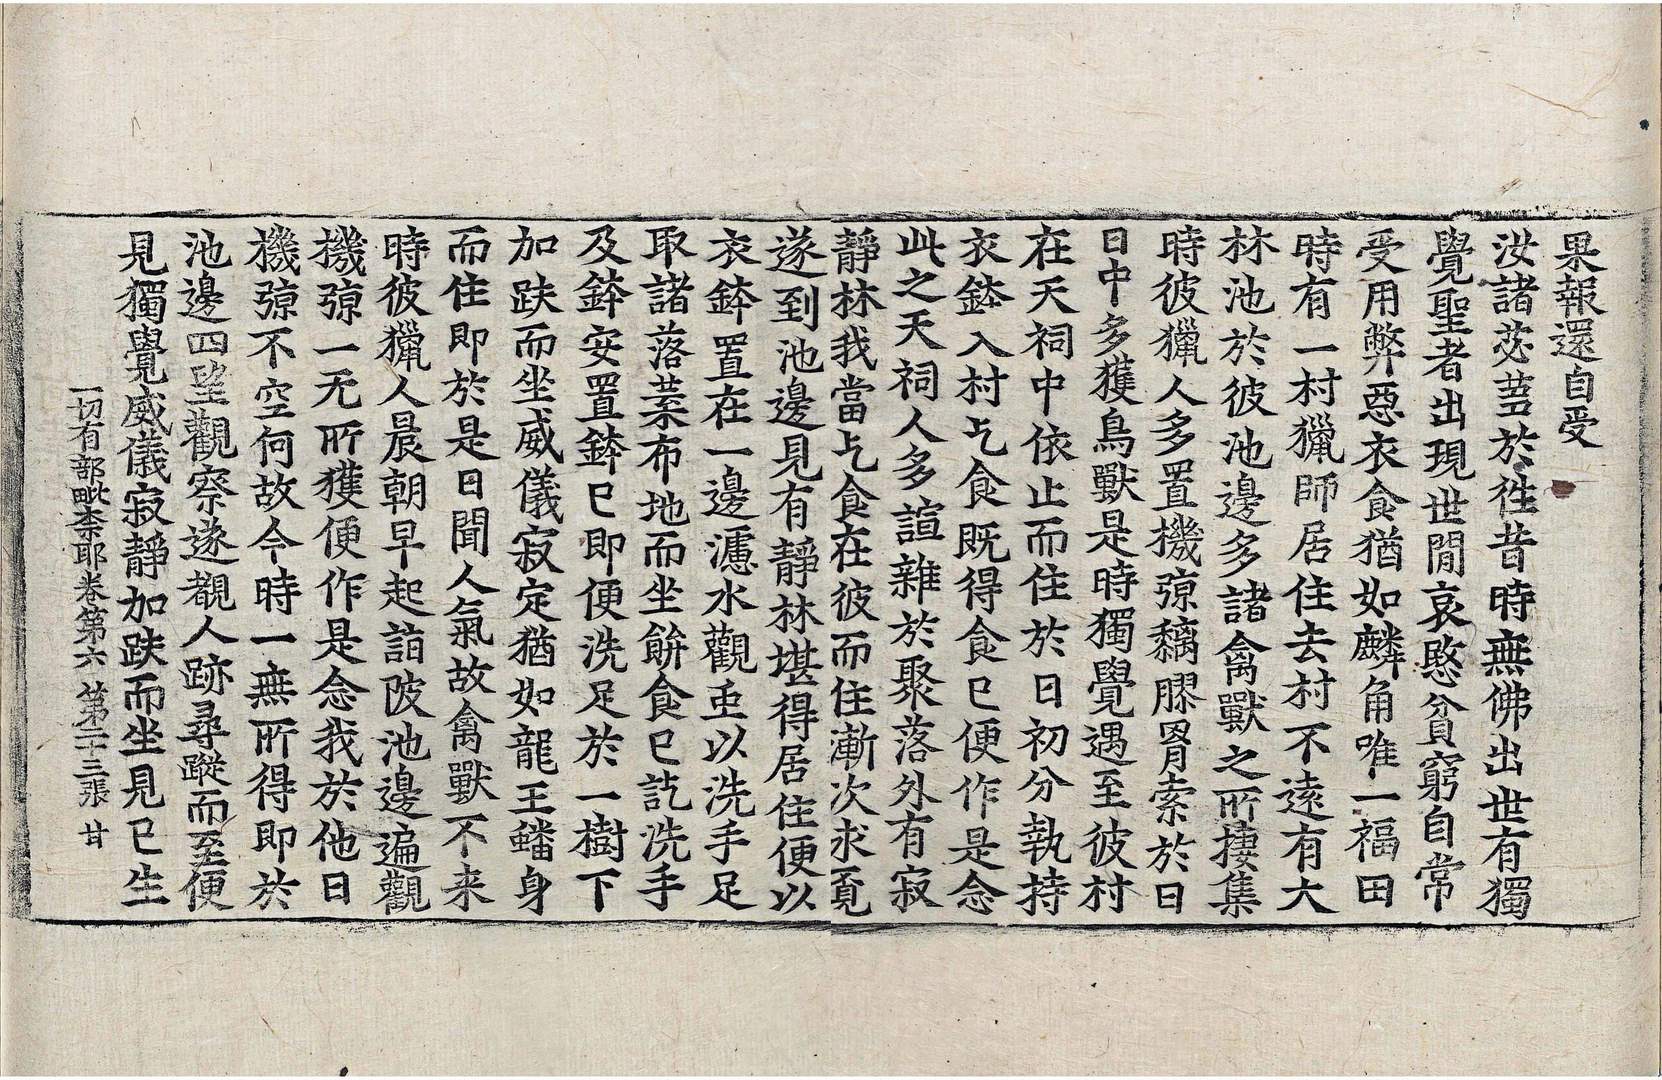 果報還自受
汝諸苾芻於徃昔時無佛出世有獨
覺聖者出現世間哀愍貧窮自常
受用弊惡衣食猶如麟角唯一福田
時有一村獵師居住去村不遠有大
林池於彼池邊多諸禽獸之所捿集
時彼獵人多置機弶黐膠罥索於日
日中多獲鳥獸是時獨覺遇至彼村
在天祠中依止而住於日初分執持
衣鉢入村乞食旣得食已便作是念
此之天祠人多諠雜於聚落外有寂
靜林我當乞食在彼而住漸次求覓
遂到池邊見有靜林堪得居住便以
衣鉢置在一邊濾水觀虫以洗手足
取諸落葉布地而坐餅食已訖洗手
及鉢安置鉢已即便洗足於一樹下
加趺而坐威儀寂定猶如龍王蟠身
而住即於是日聞人氣故禽獸不来
時彼獵人晨朝早起詣陂池邊遍觀
機弶一无所獲便作是念我於他日
機弶不空何故今時一無所得即於
池邊四望觀察遂覩人跡尋蹤而至便
見獨覺威儀寂靜加趺而坐見已生
一切有部毗柰耶卷第六 第二十三張 甘